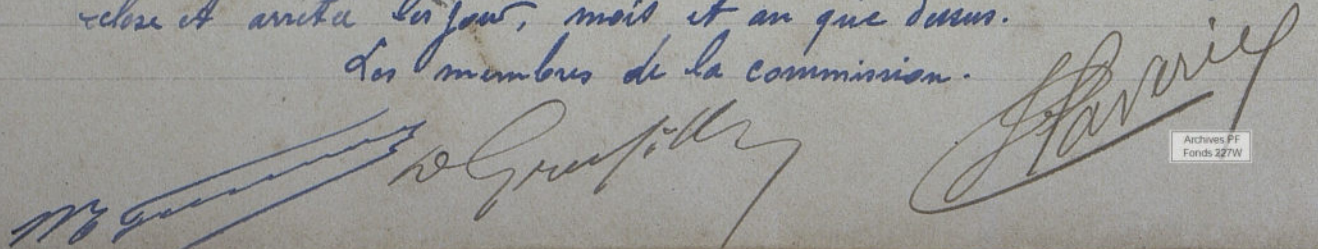 close et arrêtée les jour, mois et an que dessus.
Les membres de la commission.
Archives PF
Fonds 227W